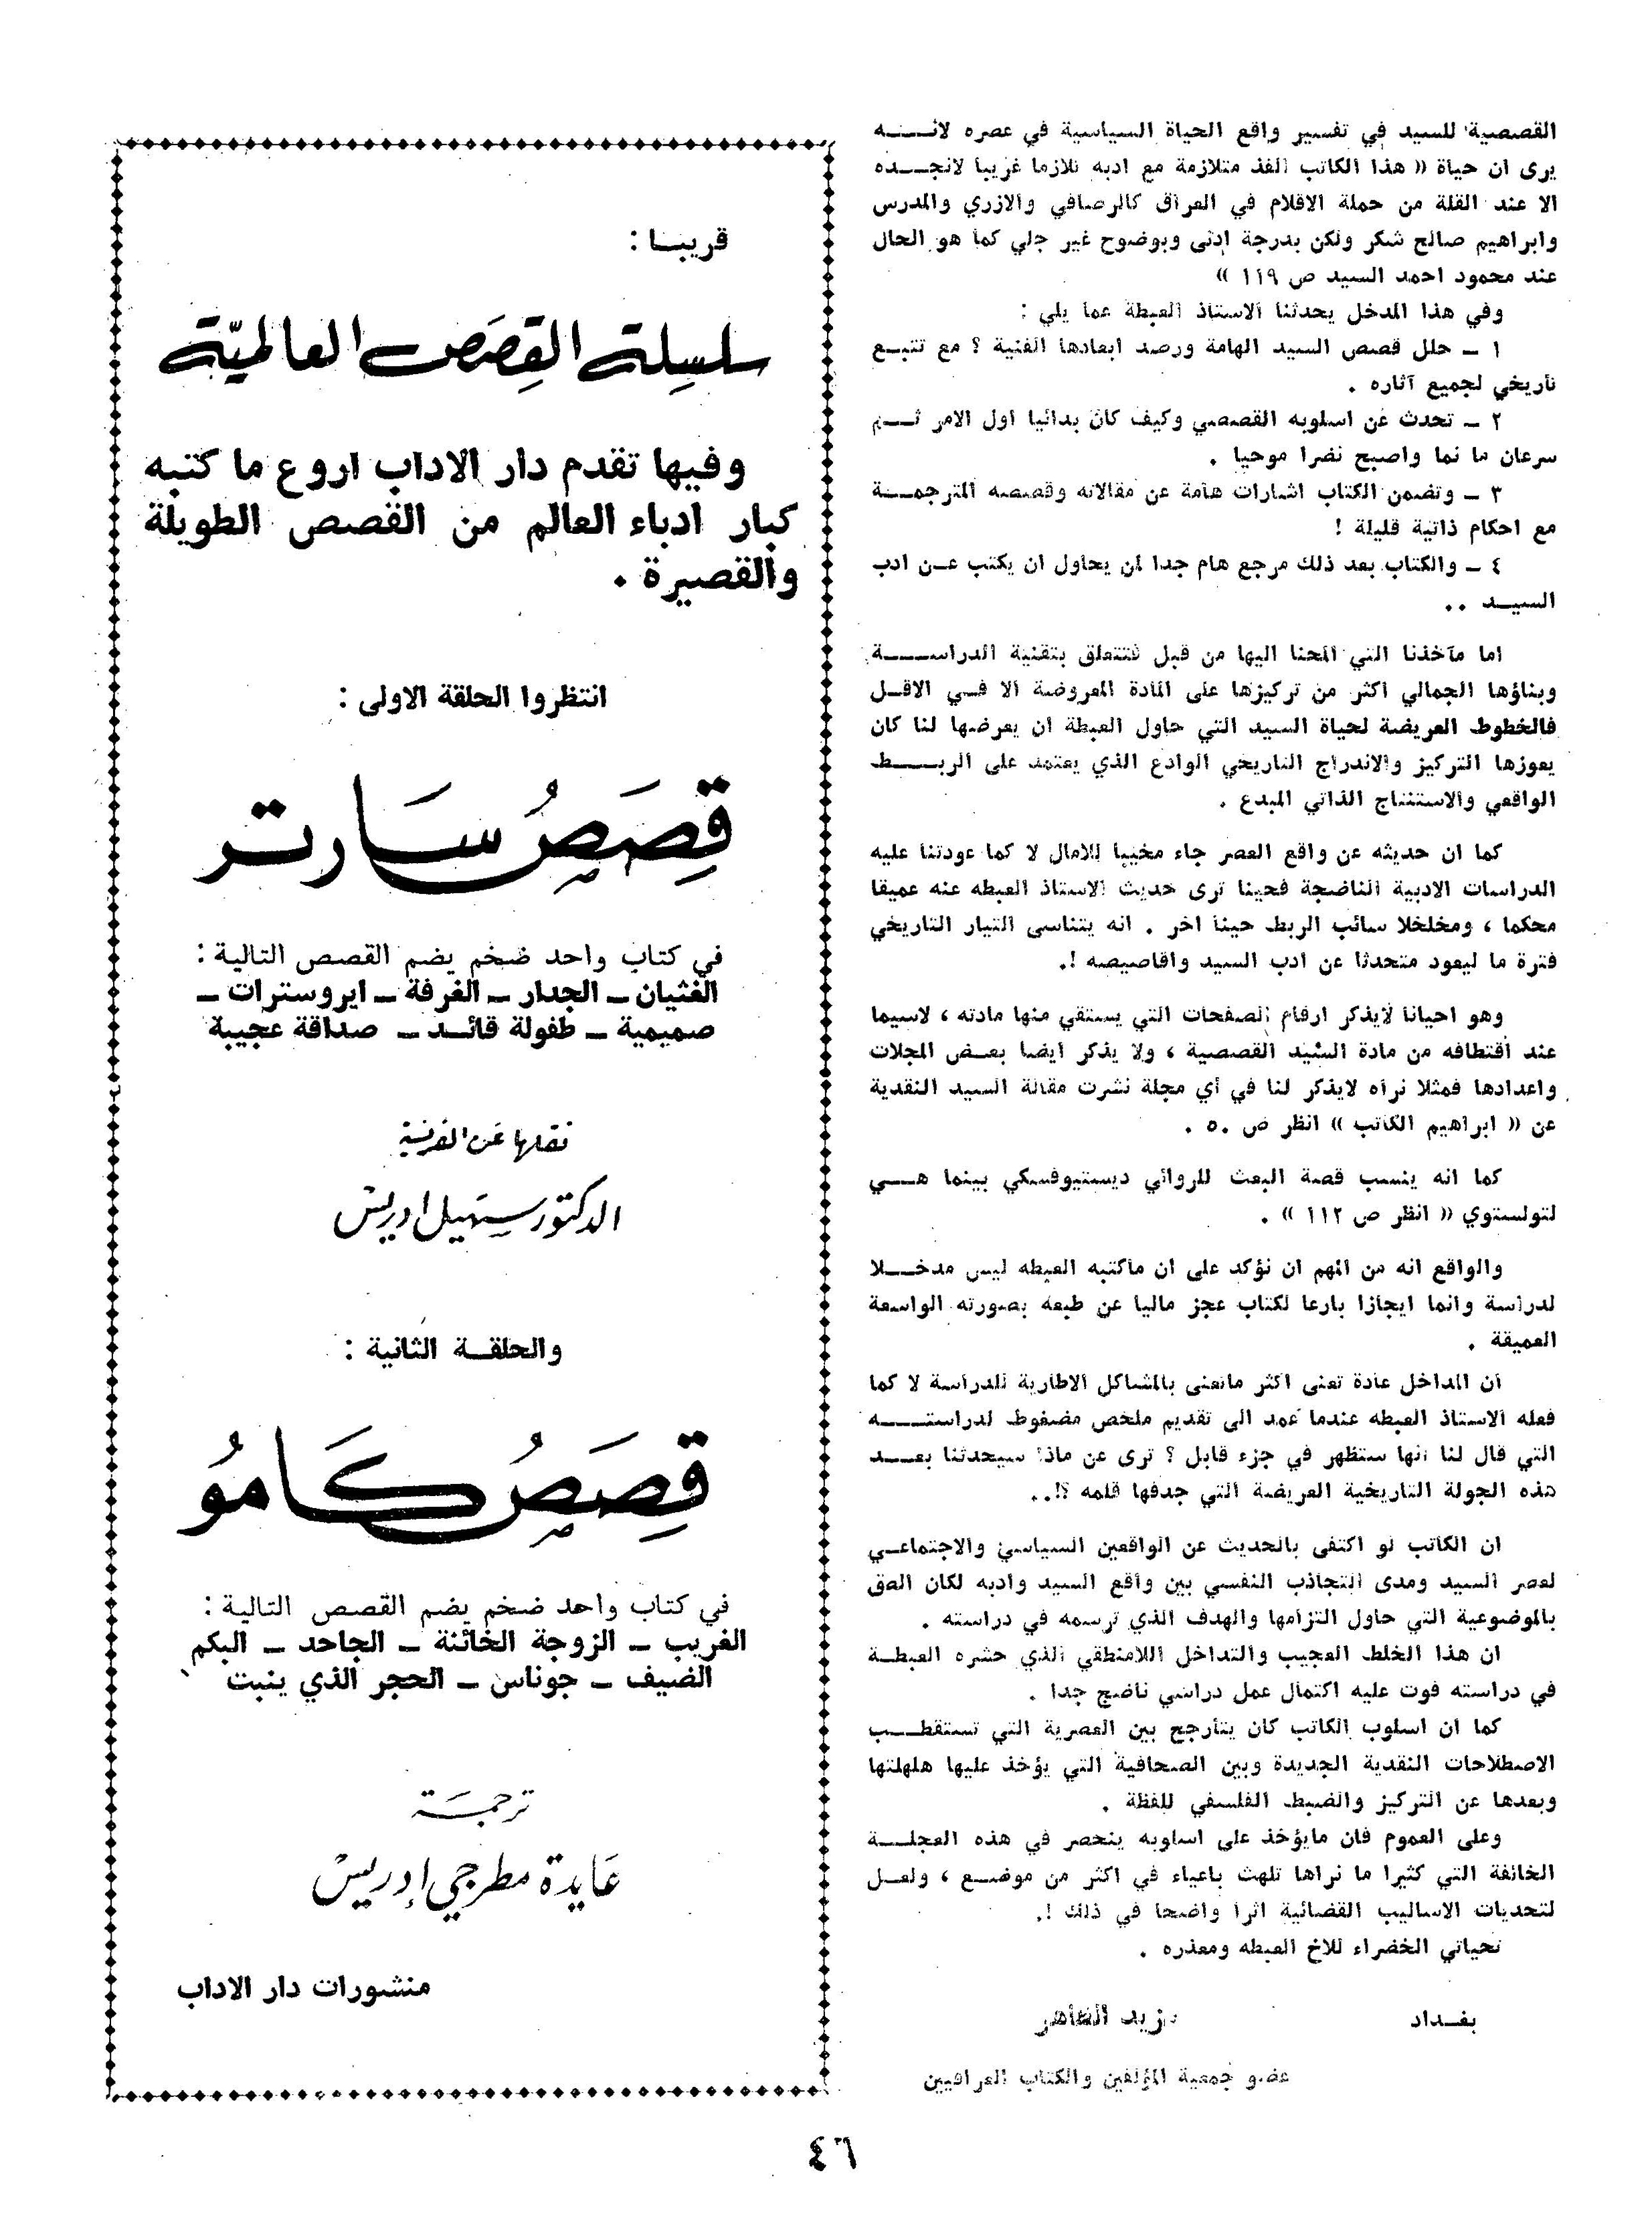 القصصية للسيد في تفسير واقع الحياة السياسية في عصره لانـــه
يرى ان حياة « هذا الكاتب الفذ متلازمة مع ادبه تلازما غريبا لانجـــده
الا عند القلة من حملة الاقلام في العراق كالرصافي والازري والمدرس
وابراهيم صالح شكر ولكن بدرجة ادنى وبوضوح غير جلي كما هو الحال
عند محمود احمد السيد ص ١١٩ »
وفي هذا المدخل يحدثنا الاستاذ العبطة عما يلي :
١ – حلل قصص السيد الهامة ورصد ابعادها الفنية ؟ مع تتبـع
تأريخي لجميع آثاره .
٢ – تحدث عن اسلوبه القصصي وكيف كان بدائيا اول الامر ثـــم
سرعان ما نما واصبح نضرا موحيا .
٣ – وتضمن الكتاب اشارات هامة عن مقالاته وقصصه المترجمـــة
مع احكام ذاتية قليلة !
٤ – والكتاب بعد ذلك مرجع هام جدا لمن يحاول ان يكتب عـن ادب
السيـد ..
اما مآخذنا التي المحنا اليها من قبل فتتعلق بتقنية الدراســـة
وبناؤها الجمالي اكثر من تركيزها على المادة المعروضة الا فـي الاقـل
فالخطوط العريضة لحياة السيد التي حاول العبطة ان يعرضها لنا كان
يعوزها التركيز والاندراج التاريخي الوادع الذي يعتمد على الربـــط
الواقعي والاستنتاج الذاتي المبدع .
كما ان حديثه عن واقع العصر جاء مخيبا للامال لا كما عودتنا عليه
الدراسات الادبية الناضجة فحينا ترى حديث الاستاذ العبطه عنه عميقا
محكما ، ومخلخلا سائب الربط حينا اخر . انه يتناسى التيار التاريخي
فترة ما ليعود متحدثا عن ادب السيد واقاصيصه !.
وهو احيانا لايذكر ارقام الصفحات التي يستقي منها مادته ، لاسيما
عند اقتطافه من مادة السيد القصصية ، ولا يذكر ايضا بعـض المجلات
واعدادها فمثلا نراه لايذكر لنا في أي مجلة نشرت مقالة السيد النقدية
عن « ابراهيم الكاتب » انظر ص ٥٠ .
كما انه ينسب قصة البعث للروائي ديستيوفسكي بينما هـــي
لتولستوي « انظر ص ١١٢ » .
والواقع انه من المهم ان نؤكد على ان ماكتبه العبطه ليس مدخـــلا
لدراسة وانما ايجازا بارعا لكتاب عجز ماليا عن طبعه بصورته الواسعة
العميقة .
ان المداخل عادة تعنى اكثر ماتعنى بالمشاكل الاطارية للدراسة لا كما
فعله الاستاذ العبطه عندما عمد الى تقديم ملخص مضغوط لدراستـــه
التي قال لنا انها ستظهر في جزء قابل ؟ ترى عن ماذا سيحدثنا بعـــد
هذه الجولة التاريخية العريضة التي جدفها قلمه ؟!..
ان الكاتب لو اكتفى بالحديث عن الواقعين السياسي والاجتماعـي
لعصر السيد ومدى التجاذب النفسي بين واقع السيد وادبه لكان الصق
بالموضوعية التي حاول التزامها والهدف الذي ترسمه في دراسته .
ان هذا الخلط العجيب والتداخل اللامنطقي الذي حشره العبطـة
في دراسته فوت عليه اكتمال عمل دراسي ناضج جدا .
كما ان اسلوب الكاتب كان يتأرجح بين العصرية التي تستقطـــب
الاصطلاحات النقدية الجديدة وبين الصحافية التي يؤخذ عليها هلهلتها
وبعدها عن التركيز والضبط الفلسفي للفظة .
وعلى العموم فان مايؤخذ على اسلوبه ينحصر في هذه العجلـــة
الخانقة التي كثيرا ما نراها تلهث باعياء في اكثر من موضـع ، ولعـل
لتحديات الاساليب القضائية اثرا واضحا في ذلك !.
تحياتي الخضراء للاخ العبطه ومعذره .
بغـداد
زيد الظاهر
عضو جمعية المؤلفين والكتاب العراقيين
قريبـا :
سلسلة القصص العالميّة
وفيها تقدم دار الاداب اروع ما كتبه
كبار ادباء العالم من القصص الطويلة
والقصيرة .
انتظروا الحلقة الاولى :
قِصَصُ سَارتر
في كتاب واحد ضخم يضم القصص التالية :
الغثيان – الجدار – الغرفة – ايروسترات –
صميمية – طفولة قائـد – صداقة عجيبة
نقلها عَن الفرنسية
الدكتور سهيل ادريس
والحلقـة الثانية :
قِصَصُ كَامُو
في كتاب واحد ضخم يضم القصص التالية :
الغريب – الزوجة الخائنة – الجاحد – البكم
الضيف – جوناس – الحجر الذي ينبت
ترجمَـة
عَايدة مطرجي إدريس
منشورات دار الاداب
٤٦